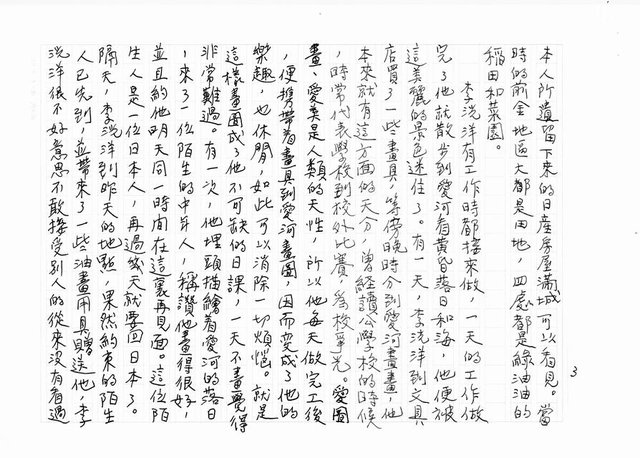 3
本人所遺留下來的日產房屋滿城可以看見。當
時的前金地區大都是田地，四處都是綠油油的
稻田和菜園。
李洗洋有工作時都接來做，一天的工作做
完了他就散步到愛河看黃昏落日和海，他便被
這美麗的景色迷住了。有一天，李洗洋到文具
店買了一些畫具，等傍晚時分到愛河畫畫，他
本來就有這方面的天分，曾經讀公學校的時候
，時常代表學校到校外比賽，為校爭光。愛圖
畫、愛美是人類的天性，所以他每天做完工後
，便攜帶着畫具到愛河畫圖，因而變成了他的
樂趣，也休閒，如此可以消除一切煩惱。就是
這樣畫圖成了他不可缺的日課，一天不畫覺得
非常難過。有一次，他埋頭描繪着愛河的落日
，來了一位陌生的中年人，稱讚他畫得很好，
並且約他明天同一時間在這裏再見面。這位陌
生人是一位日本人，再過幾天就要回日本了。
隔天，李洗洋到昨天的地點，果然約束的陌生
人已先到，並帶來了一些油畫用具贈送他，李
洗洋很不好意思不敢接受別人的從來沒有看過